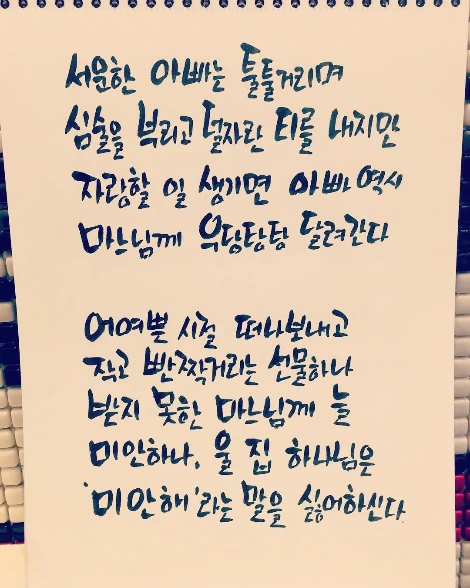 서운한 아빠는 툴툴거리며
심술을 부리고 덜자란 티를 내지만
자랑할 일 생기면 아빠 역시
마느님께 우당탕탕 달려간다
어여쁜 시절 떠나보내고
작고 반짝거리는 선물하나
받지 못한 마느님께 늘
미안하나, 울 집 하나님은
'미안해'라는 말을 싫어하신다.